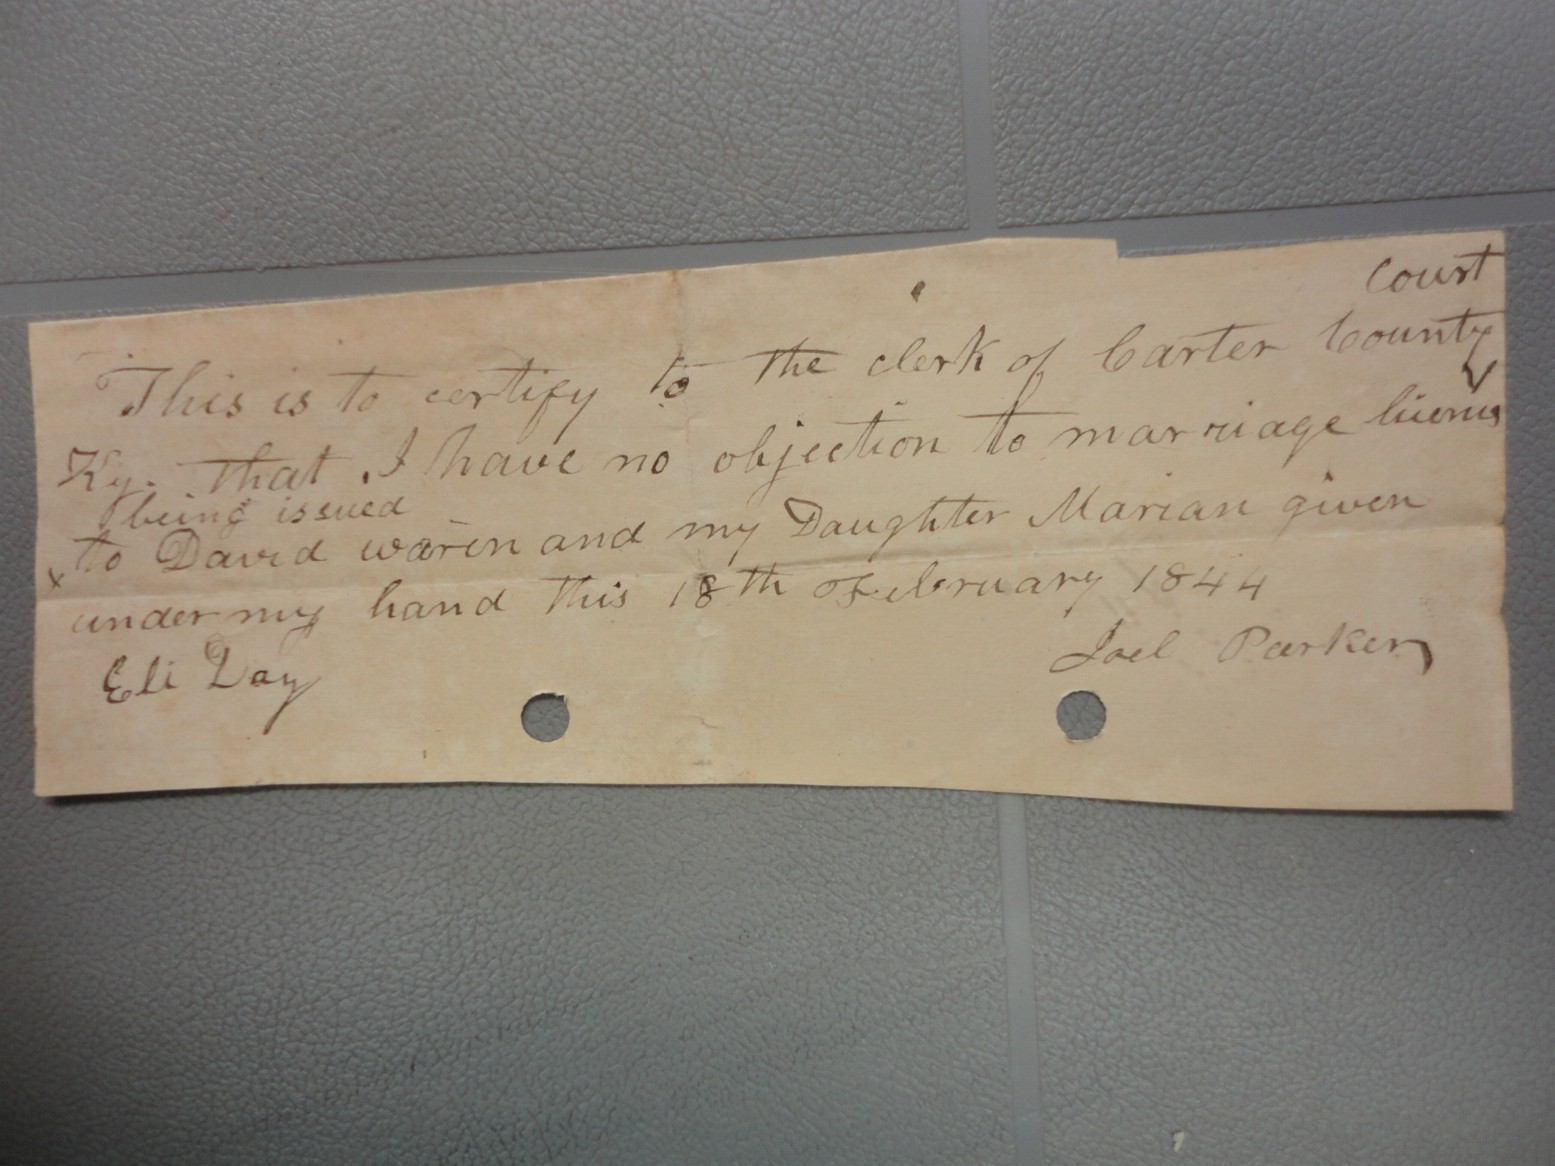 court
This is to certify to the clerk of Carter County
Ky. that I have no objection to marriage licens
being issued
x to David waren and my Daughter Marian given
under my hand this 18th of February 1844
Eli Day Joel Parker